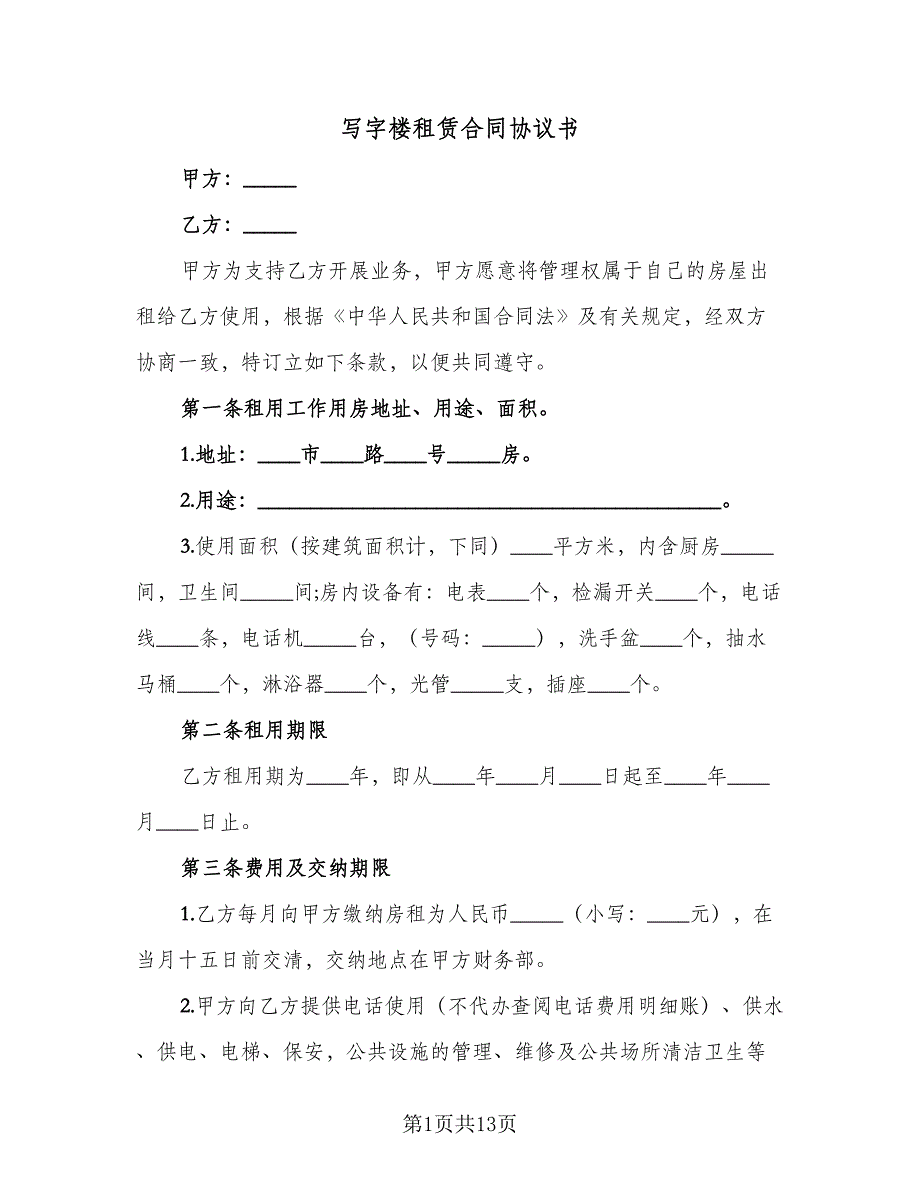 写字楼租赁合同协议书
甲方：_____
乙方：_____
甲方为支持乙方开展业务，甲方愿意将管理权属于自己的房屋出
租给乙方使用，根据《中华人民共和国合同法》及有关规定，经双方
协商一致，特订立如下条款，以便共同遵守。
第一条租用工作用房地址、用途、面积。
1.地址：____市____路____号_____房。
2.用途：____________________________________________。
3.使用面积（按建筑面积计，下同）____平方米，内含厨房_____
间，卫生间_____间;房内设备有：电表____个，检漏开关____个，电话
线____条，电话机_____台，（号码：_____），洗手盆____个，抽水
马桶____个，淋浴器____个，光管_____支，插座____个。
第二条租用期限
乙方租用期为____年，即从____年____月____日起至____年____
月____日止。
第三条费用及交纳期限
1.乙方每月向甲方缴纳房租为人民币_____（小写：____元），在
当月十五日前交清，交纳地点在甲方财务部。
2.甲方向乙方提供电话使用（不代办查阅电话费用明细账）、供水
、供电、电梯、保安，公共设施的管理、维修及公共场所清洁卫生等
第1页共13页